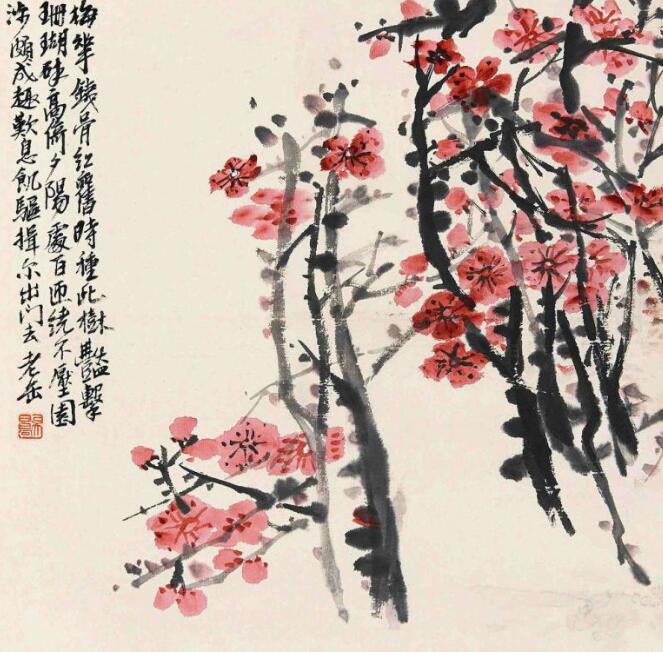 梅華鐵骨紅舊時種此樹豔擊
珊瑚碎高倚夕陽處百匝繞不壓園
涉頗成趣歎息飢驅揖尔出門去老缶